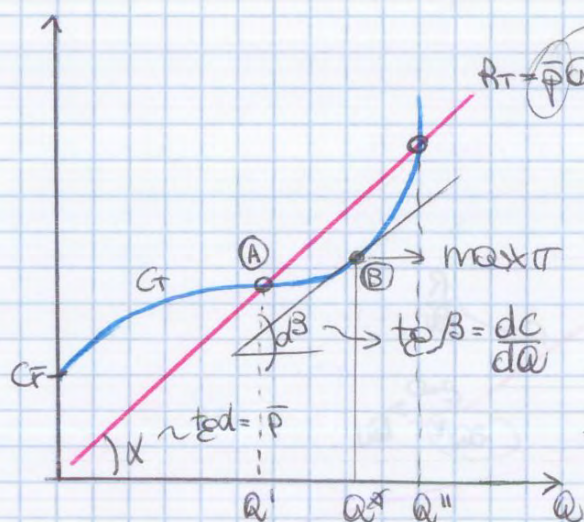 RT = p̄Q
A
CT
B → max π
dβ ~> tgβ = dC/dQ
CF
α ~ tgα = p̄
Q' Q* Q'' Q